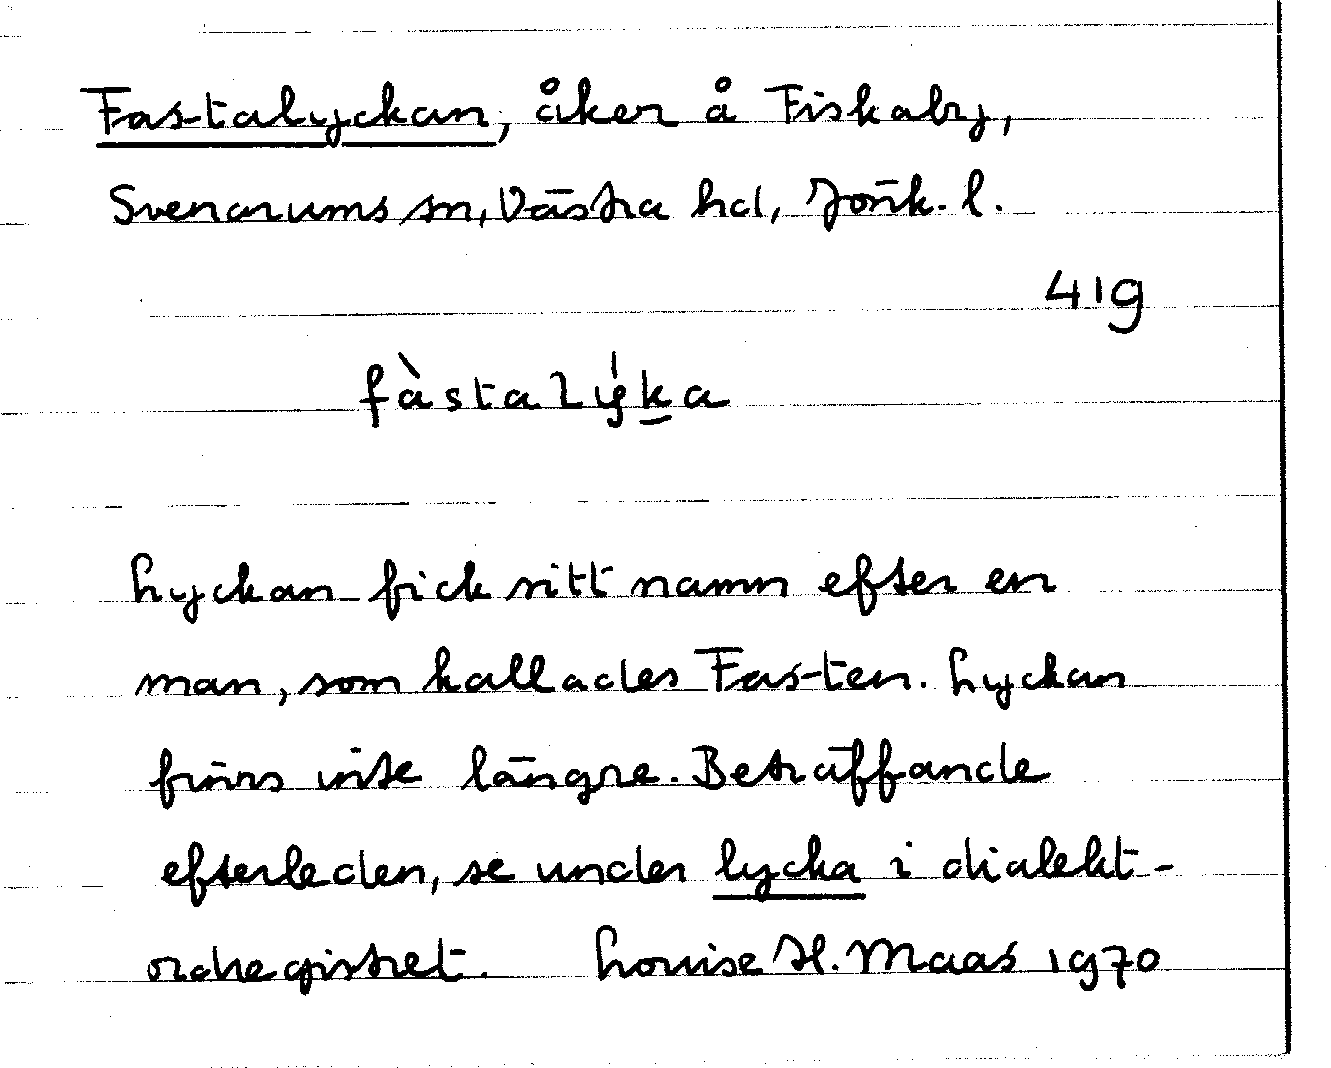 Fastalyckan, åker å Fiskaby,
Svenarums sn, Västra hd, Jönk. l.
419
fàstalẏka
Lyckan fick sitt namn efter en
man, som kallades Fasten. Lyckan
finns inte längre. Beträffande
efterleden, se under lycka i dialekt-
ordregistret. Louise H. Maas 1970